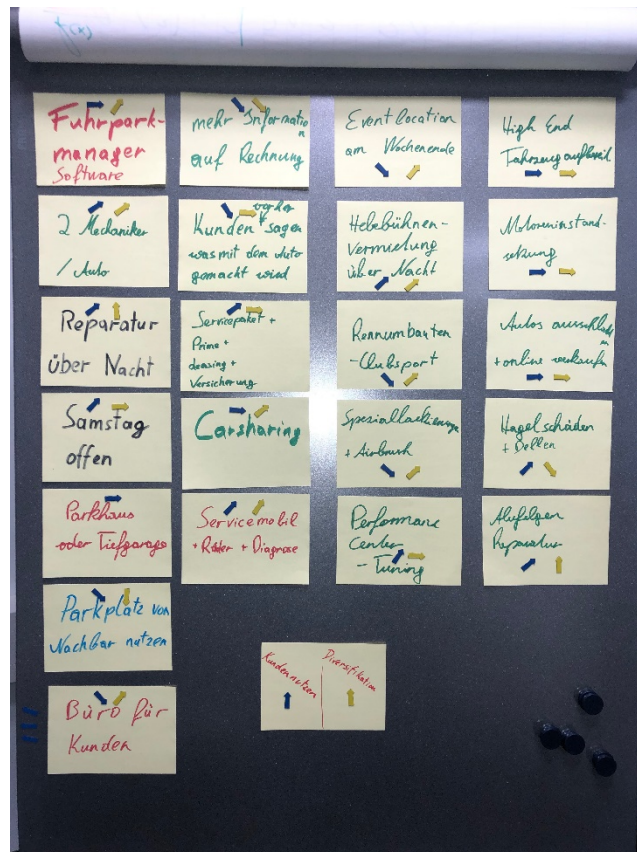 f(x)
Fuhrpark-
manager
Software
2 Mechaniker
/ Auto
Reparatur
über Nacht
Samstag
offen
Parkhaus
oder Tiefgarage
Parkplatz von
Nachbar nutzen
Büro für
Kunden
mehr Information
auf Rechnung
vorher
Kunden sagen
was mit dem Auto
gemacht wird
Servicepaket +
Prime +
Leasing +
Versicherung
Carsharing
Servicemobil
+ Räder + Diagnose
Eventlocation
am Wochenende
Hebebühnen-
Vermietung
über Nacht
Rennumbauten
- Clubsport
Speziallackierung
+ Airbrush
Performance
Center
- Tuning
High End
Fahrzeugaufbereit
Motoreninstand-
setzung
Autos ausschlachten
+ online verkaufen
Hagelschäden
+ Dellen
Alufelgen
Reparatur
Kundennutzen
Diversifikation